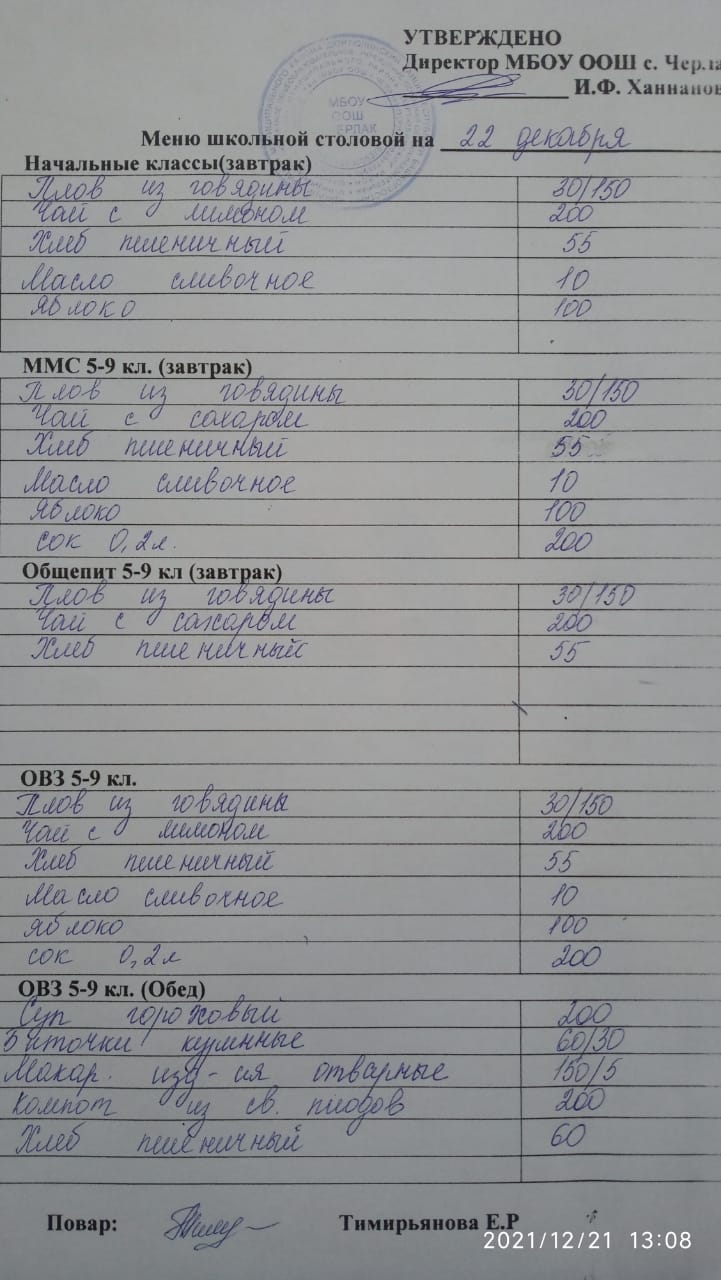 УТВЕРЖДЕНО
Директор МБОУ ООШ с. Черла
И.Ф. Ханнанов
МБОУ
ООШ
ЕРЛАК
Меню школьной столовой на 22 декабря
Начальные классы(завтрак)
Плов из говядины 30/150
Чай с лимоном 200
Хлеб пшеничный 55
Масло сливочное 10
Яблоко 100
ММС 5-9 кл. (завтрак)
Плов из говядины 30/150
Чай с сахаром 200
Хлеб пшеничный 55
Масло сливочное 10
Яблоко 100
сок 0,2л. 200
Общепит 5-9 кл (завтрак)
Плов из говядины 30/150
Чай с сахаром 200
Хлеб пшеничный 55
ОВЗ 5-9 кл.
Плов из говядины 30/150
Чай с лимоном 200
Хлеб пшеничный 55
Масло сливочное 10
Яблоко 100
сок 0,2л 200
ОВЗ 5-9 кл. (Обед)
Суп гороховый 200
Биточки куриные 60/30
Макар. изд-ия отварные 150/5
Компот из св. плодов 200
Хлеб пшеничный 60
Повар: Тимирьянова Е.Р
2021/12/21 13:08